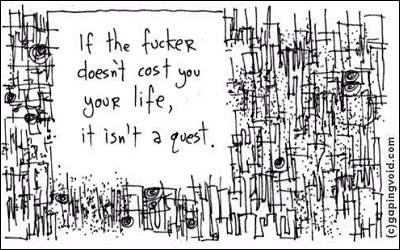 If the fucker
doesn't cost you
your life,
it isn't a quest.
(c)gapingvoid.com